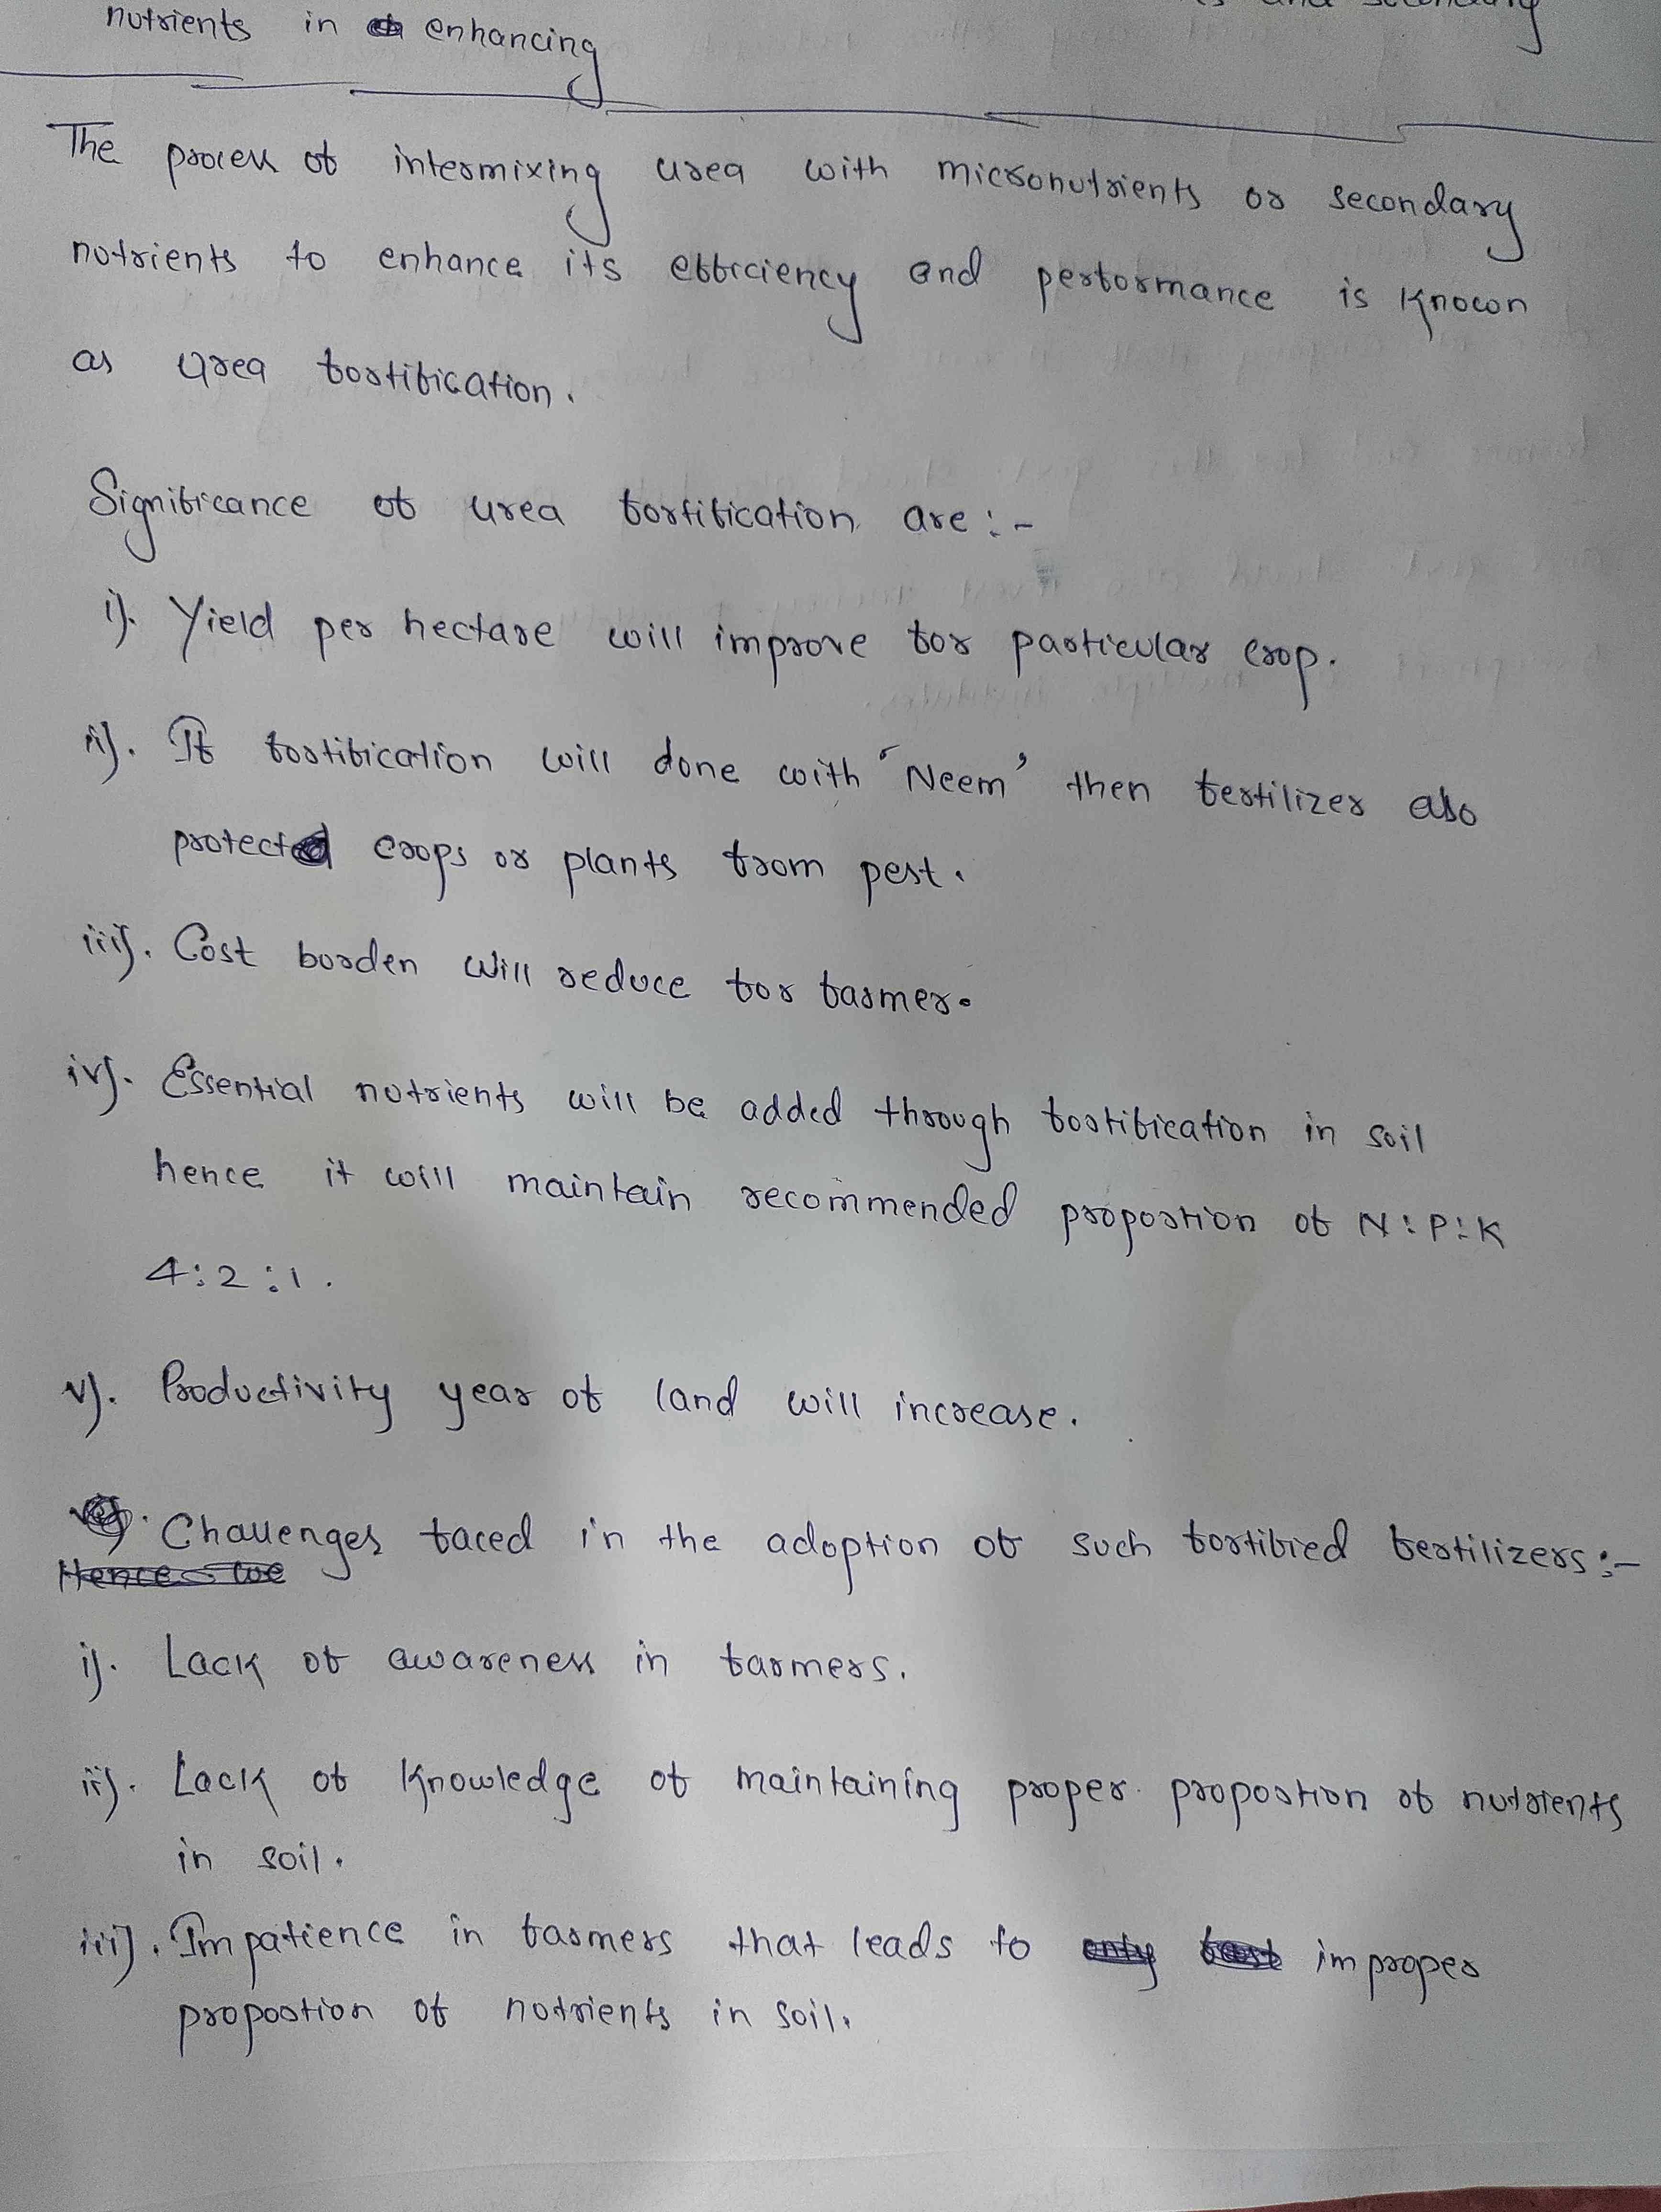 and secondary
nutrients in enhancing
The process of intermixing urea with micronutrients or secondary
nutrients to enhance its efficiency and performance is known
as urea fortification.
Significance of urea fortification are :-
i). Yield per hectare will improve for particular crop.
ii). If fortification will done with 'Neem' then fertilizer also
protect crops or plants from pest.
iii). Cost borden will reduce for farmer.
iv). Essential nutrients will be added through fortification in soil
hence it will maintain recommended proportion of N:P:K
4:2:1.
v). Productivity year of land will increase.
Challenges faced in the adoption of such fortified fertilizers :-
Hence we
i). Lack of awareness in farmers.
ii). Lack of knowledge of maintaining proper proportion of nutrients
in soil.
iii). Impatience in farmers that leads to only fast improper
proportion of nutrients in soil.